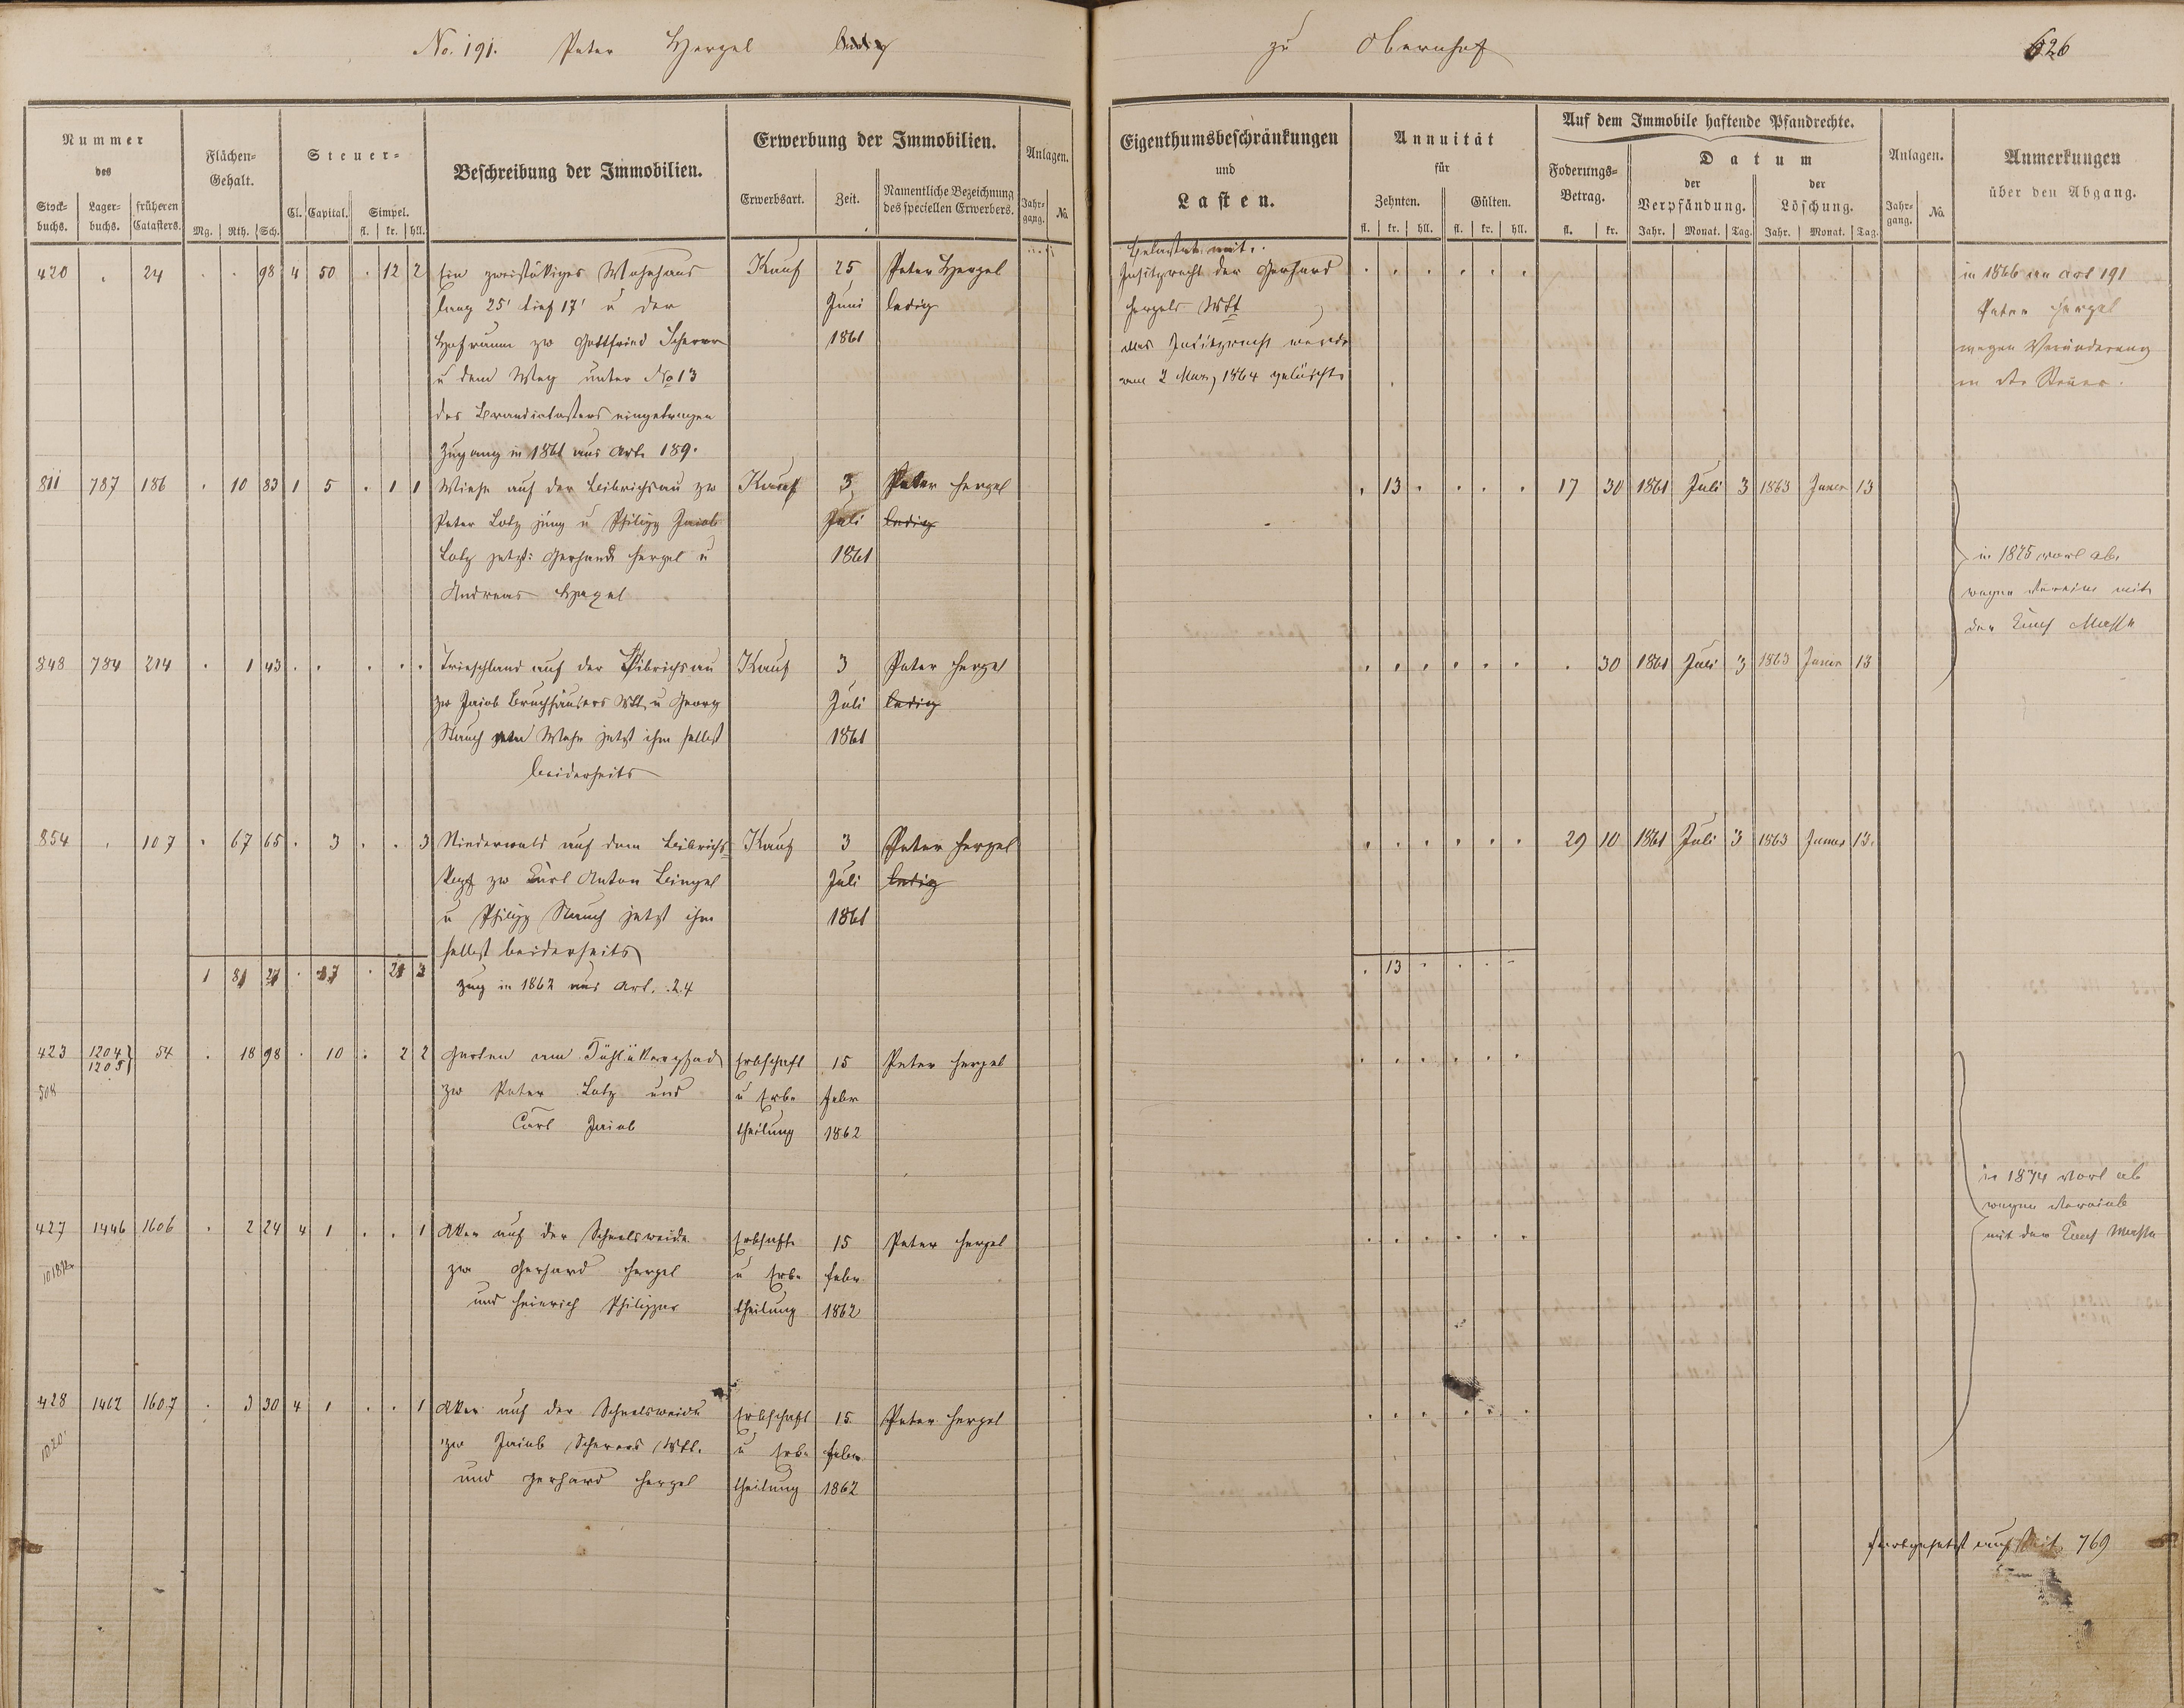 No. 191. Peter Hergel ledig
zu Obernhof
626
Nummer
des
Stock-
buchs.
Lager-
buchs.
früheren
Catasters.
Flächen-
Gehalt.
Mg. Rth. Sch.
Steuer-
Cl. Capital. Simpel.
fl. kr. hll.
Beschreibung der Immobilien.
Erwerbung der Immobilien.
Erwerbsart. Zeit.
Namentliche Bezeichnung
des speciellen Erwerbers.
Anlagen.
Jahr-
gang. No.
Eigenthumsbeschränkungen
und
Lasten.
Annuität
für
Zehnten. Gülten.
fl. kr. hll. fl. kr. hll.
Auf dem Immobile haftende Pfandrechte.
Foderungs-
Betrag.
fl. kr.
Datum
der
Verpfändung.
der
Löschung.
Jahr. Monat. Tag. Jahr. Monat. Tag.
Anlagen.
Jahr-
gang. No.
Anmerkungen
über den Abgang.
420 . 24 . . 98 4 50 . 12 2
Ein zweistökiges Wohnhaus
lang 25' tief 17' u der
Hofraum zw Gottfried Scherer
u dem Weg unter No 13
des Brandcatasters eingetragen
Zugang in 1861 aus Art. 189.
Kauf 25
Juni
1861
Peter Hergel
ledig
belastet mit.
Insitzrecht der Gerhard
Hergels Wtt
das Insitzrecht wurde
am 2 März 1864 gelöscht
in 1866 an Art 191
Peter Hergel
wegen Veränderung
in der Steuer.
811 787 186 . 10 83 1 5 . 1 1
Wiese auf der Leibrichsau zw
Peter Lotz jung u Philipp Jacob
Lotz jetzt: Gerhard Hergel u
Andreas Hergel
Kauf 3
Juli
1861
Peter Hergel
ledig
. 13 . . . . 17 30 1861 Juli 3 1863 Januar 13
in 1875 vorl ab.
wegen Verein mit
der Kauf Masse
848 784 214 . 1 43 . . . . .
Trieschland auf der Leibrichsau
zw Jacob Bruchhäusers Wtt u Georg
Stauch jetzt ihm selbst
beiderseits
Kauf 3
Juli
1861
Peter Hergel
ledig
. 30 1861 Juli 3 1863 Januar 13
854 . 107 . 67 65 . 3 . . 3
Niederwald auf dem Leibrichs-
kopf zw Karl Anton Bingel
u Philipp Stauch jetzt ihm
selbst beiderseits
Zug in 1862 aus Art. 24
Kauf 3
Juli
1861
Peter Hergel
ledig
29 10 1861 Juli 3 1863 Januar 13.
. 13 . . . .
423 1204 54 . 18 98 . 10 . 2 2
1205
508
Garten am
zw Peter Lotz und
Carl Jacob
Erbschaft
u Erb-
theilung
15
Febr
1862
Peter Hergel
427 1446 1606 . 2 24 4 1 . . 1
Aker auf der Schaelsweide
zw Gerhard Hergel
und Heinrich Philippus
Erbschaft
u Erb-
theilung
15
Febr
1862
Peter Hergel
in 1874 vorl ab
wegen
mit der Kauf Masse
428 1462 1607 . 3 30 4 1 . . 1
1020
Aker auf der Schaelsweide
zw Jacob Scherers Wtt.
und Gerhard Hergel
Erbschaft
u Erb-
theilung
15
Febr
1862
Peter Hergel
fortgesetzt auf Seite 769